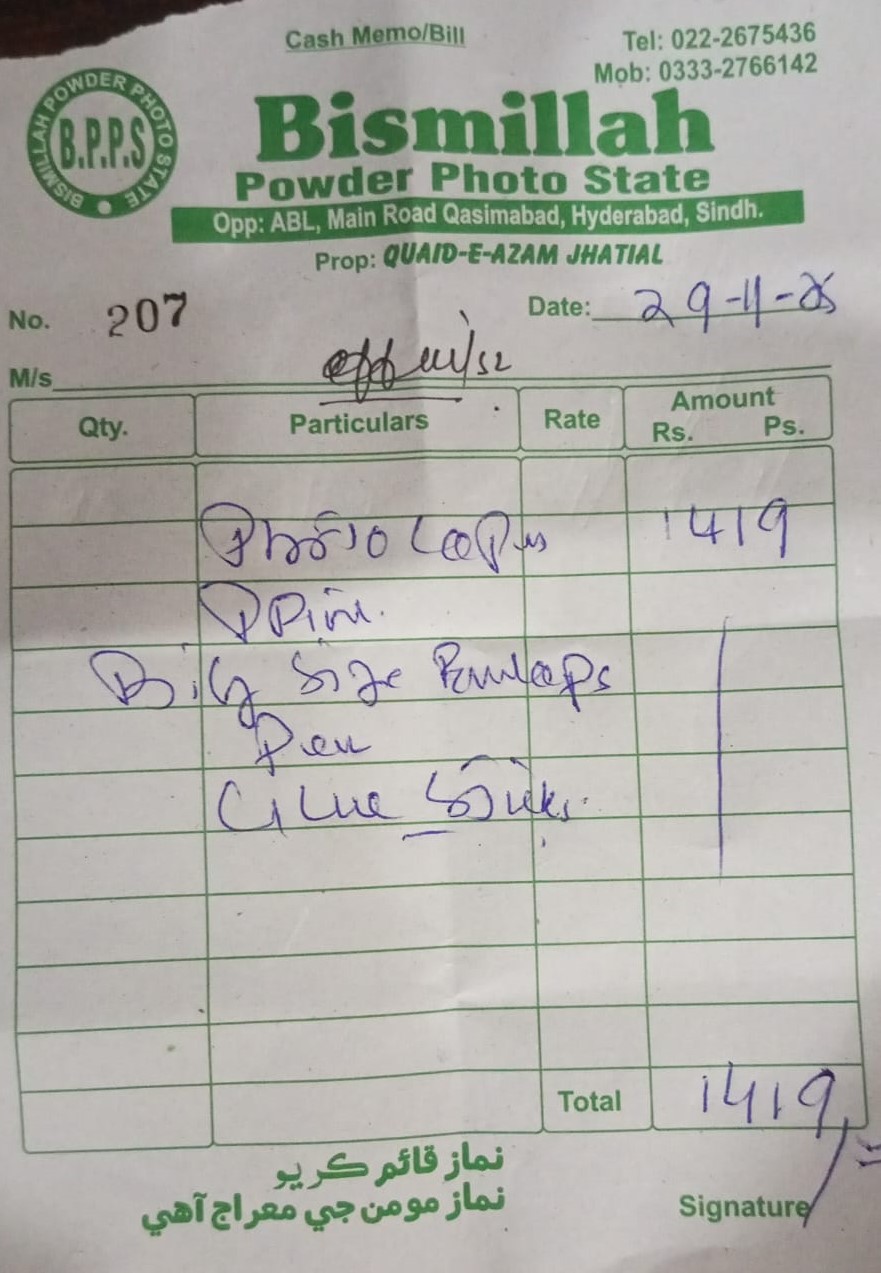 Cash Memo/Bill
Tel: 022-2675436
Mob: 0333-2766142
BISMILLAH POWDER PHOTO STATE
B.P.P.S
Bismillah
Powder Photo State
Opp: ABL, Main Road Qasimabad, Hyderabad, Sindh.
Prop: QUAID-E-AZAM JHATIAL
No. 207 Date: 29-11-25
M/s
Qty. Particulars Rate Amount
Rs. Ps.
Photo 1419
Big Size
Pen
Glue Sticks
Total 1419/=
نماز قائم ڪريو
نماز مومن جي معراج آهي
Signature